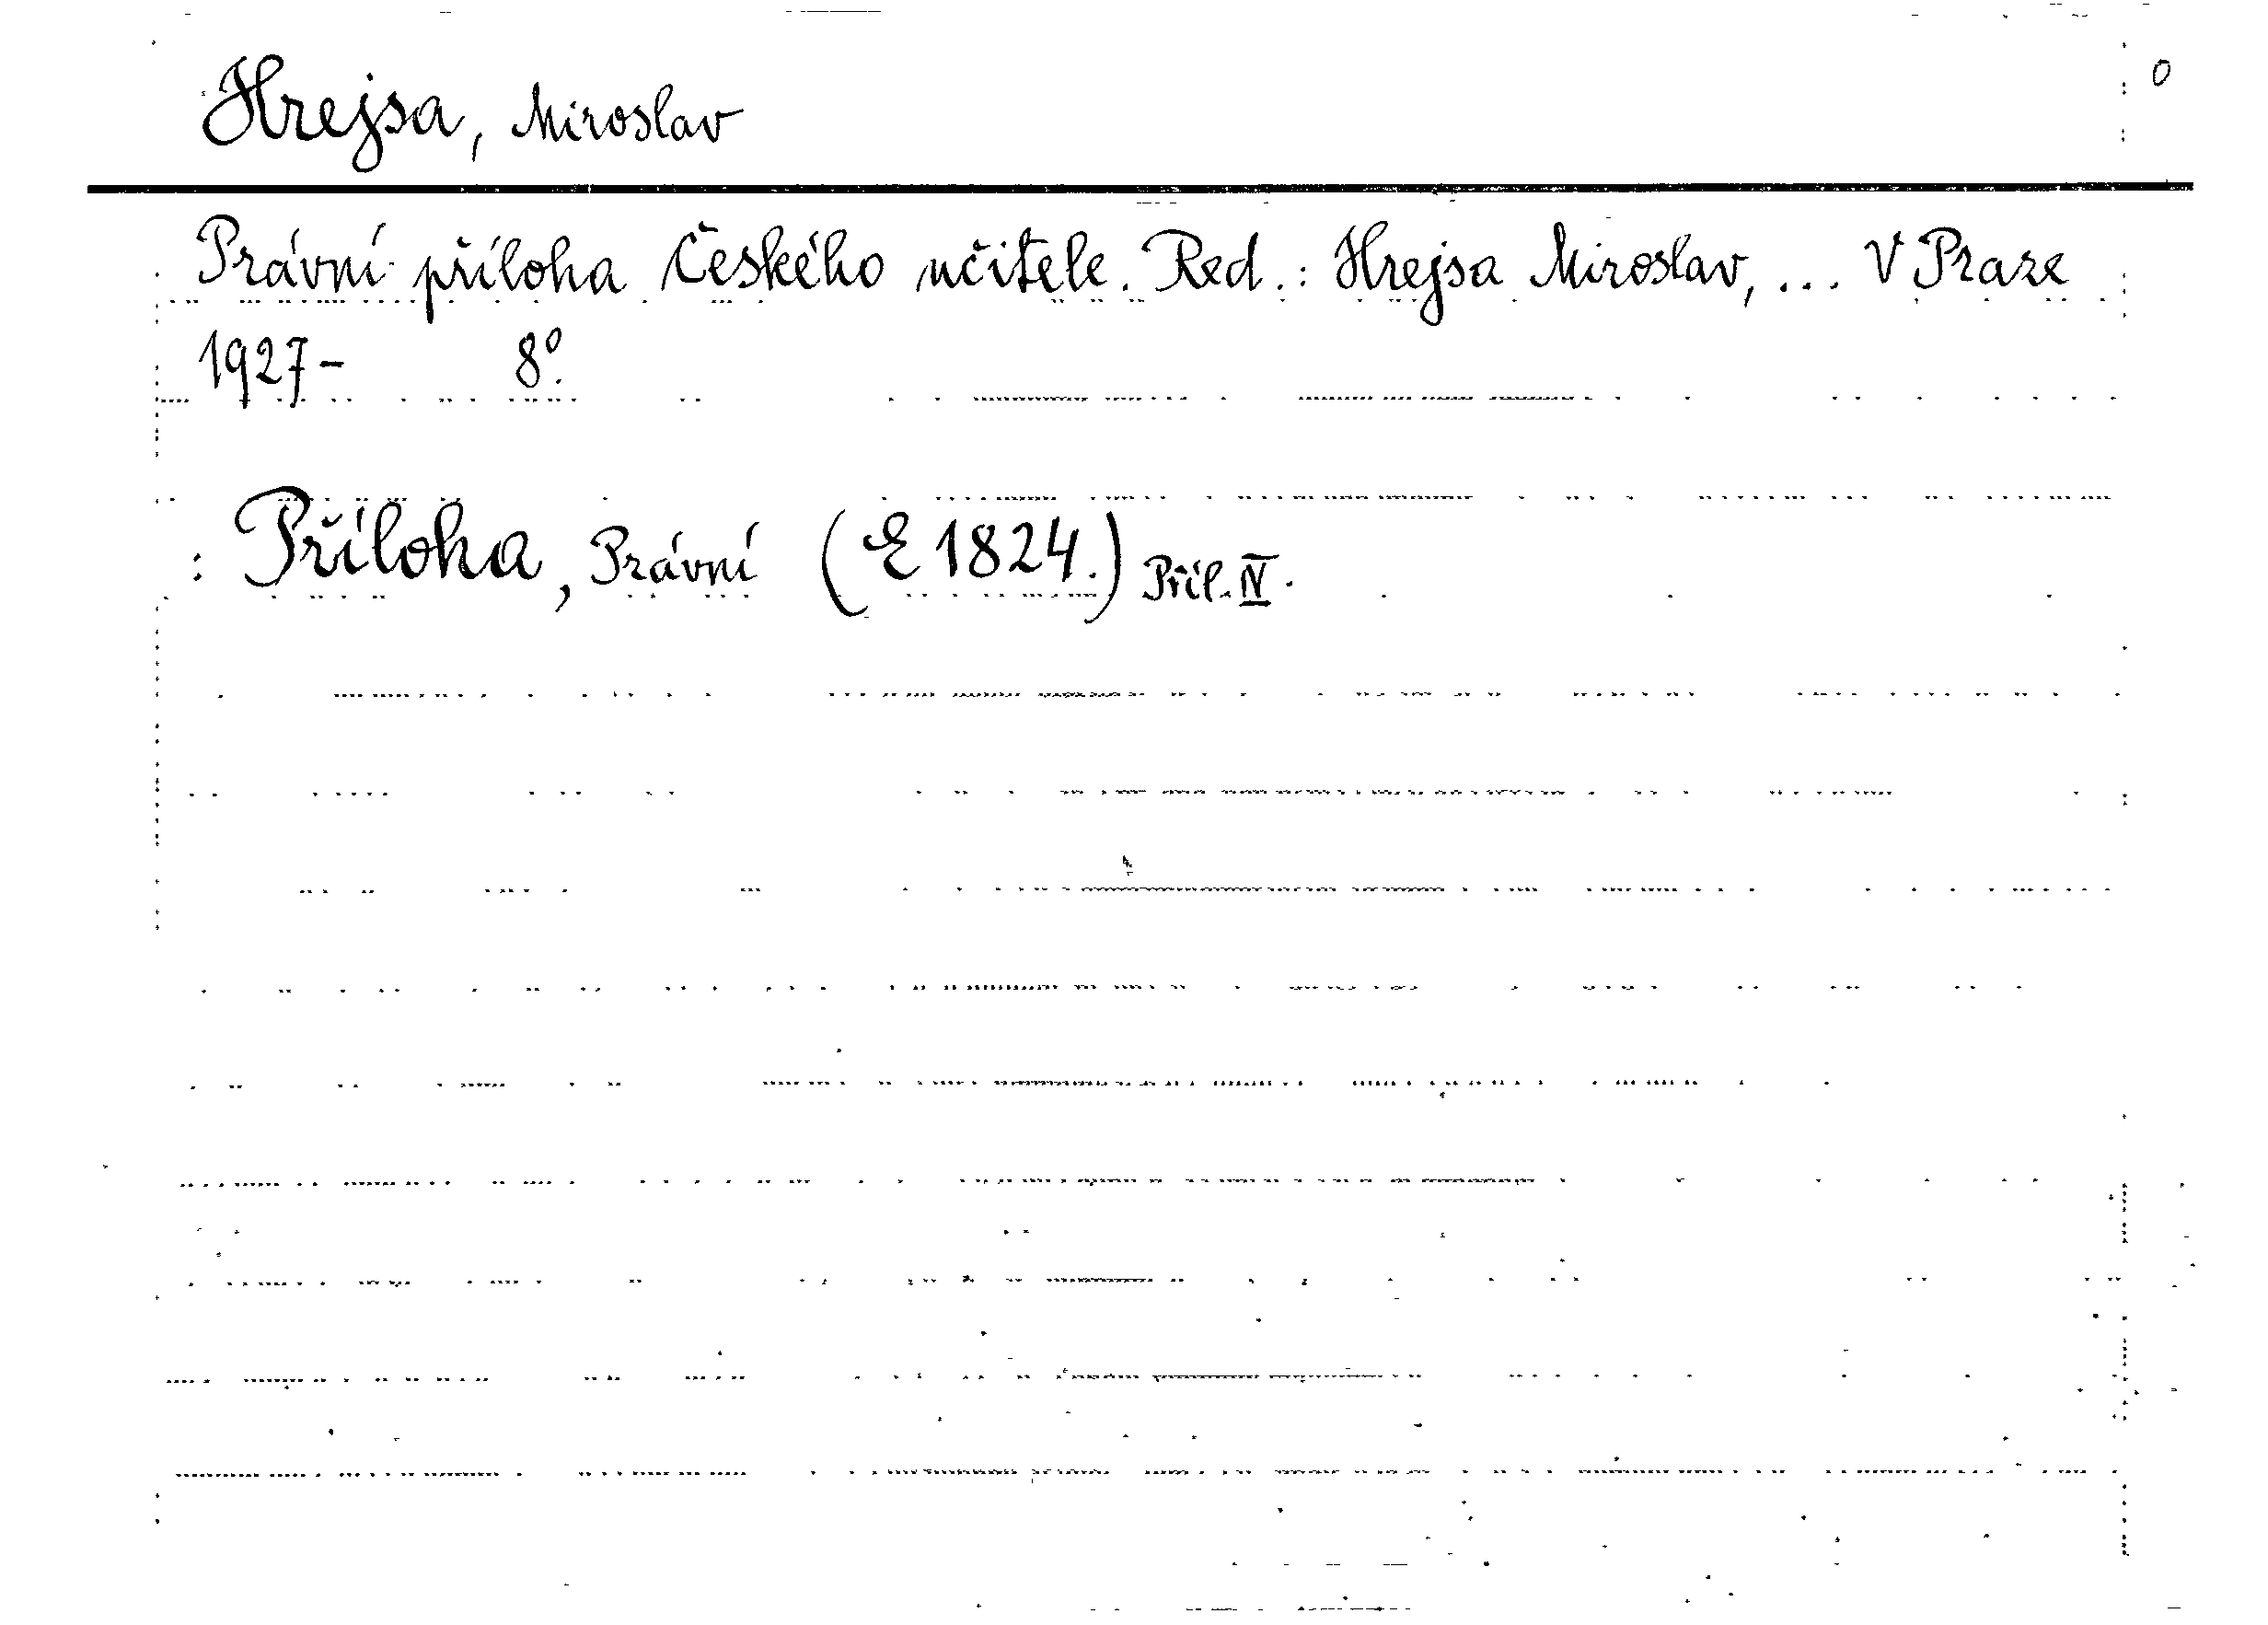 Hrejsa, Miroslav 0
Právní příloha Českého učitele. Red.: Hrejsa Miroslav, ... V Praze
1927- 8º.
: Příloha, Právní (E 1824.) Příl. IV.